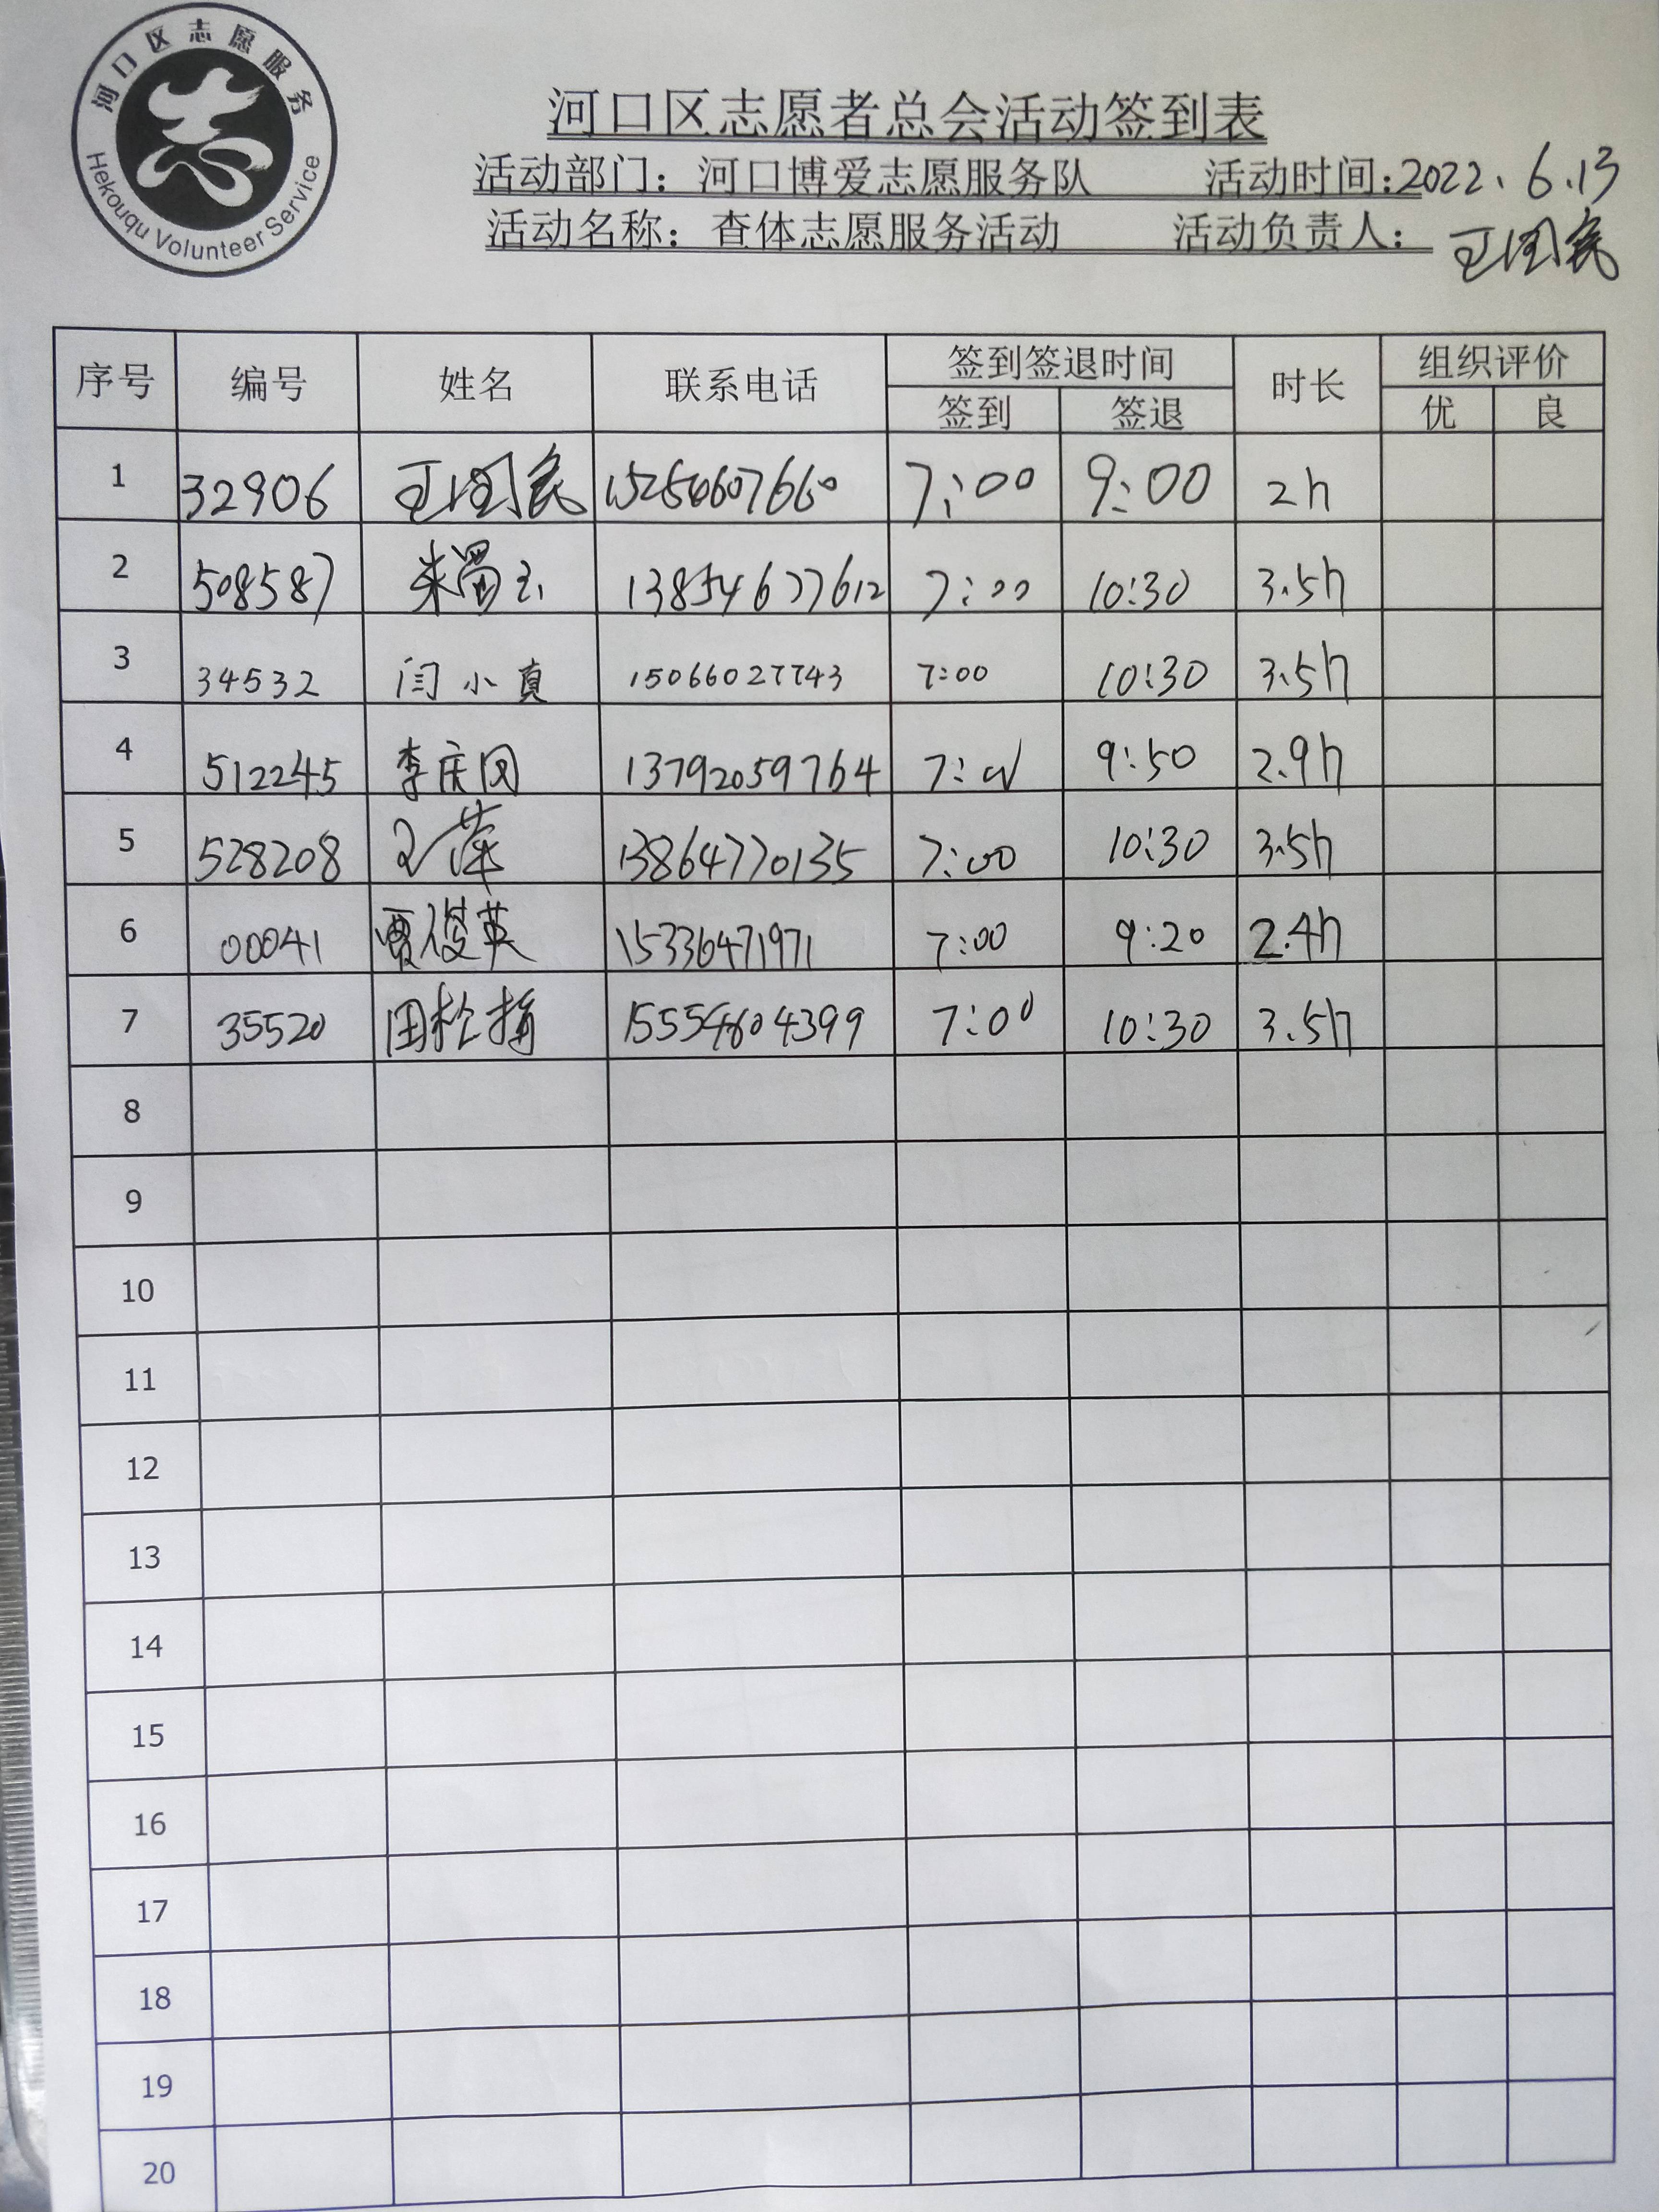 河口区志愿服务
Hekouqu Volunteer Service
河口区志愿者总会活动签到表
活动部门：河口博爱志愿服务队 活动时间:2022.6.13
活动名称：查体志愿服务活动 活动负责人：王国民
序号 编号 姓名 联系电话 签到签退时间 时长 组织评价
签到 签退 优 良
1 32906 王国民 15254607660 7:00 9:00 2h
2 508587 13854677612 7:00 10:30 3.5h
3 34532 闫小真 15066027743 7:00 10:30 3.5h
4 512245 李庆 13792059764 7:00 9:50 2.9h
5 528208 王萍 13864770135 7:00 10:30 3.5h
6 00041 贾俊英 15336471971 7:00 9:20 2.4h
7 35520 田 15554604399 7:00 10:30 3.5h
8
9
10
11
12
13
14
15
16
17
18
19
20